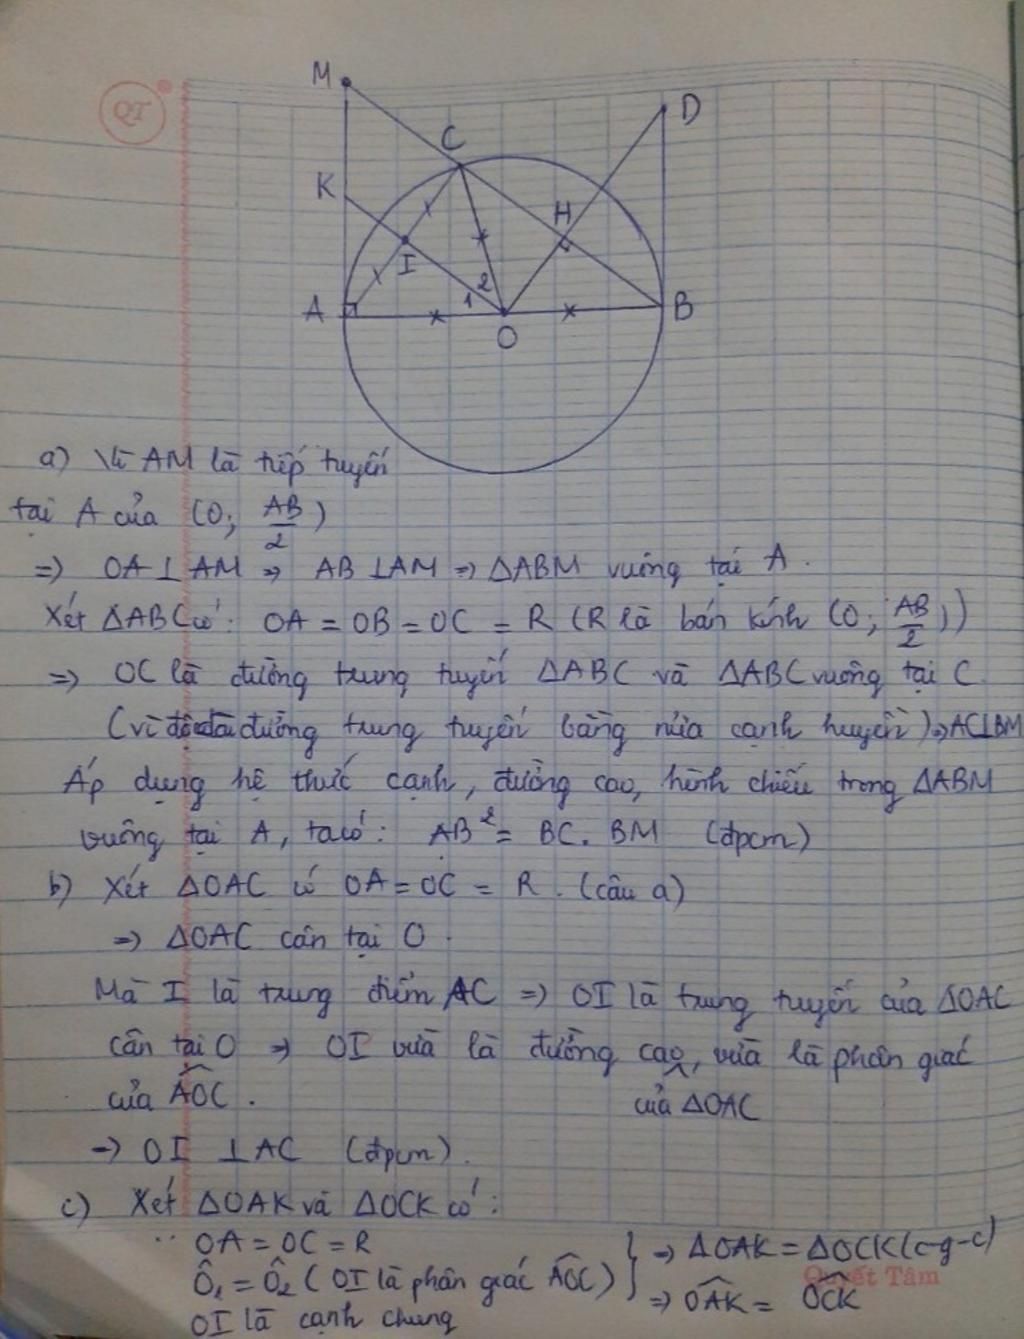 QT
M
D
C
K
H
I
2
1
A
B
O
a) Vì AM là tiếp tuyến
tại A của (O; AB/2)
=> OA ⊥ AM => AB ⊥ AM => ΔABM vuông tại A.
Xét ΔABC có: OA = OB = OC = R (R là bán kính (O; AB/2))
=> OC là đường trung tuyến ΔABC và ΔABC vuông tại C.
(vì độ dài đường trung tuyến bằng nửa cạnh huyền) => AC⊥BM
Áp dụng hệ thức cạnh, đường cao, hình chiếu trong ΔABM
vuông tại A, ta có: AB² = BC. BM (đpcm)
b) Xét ΔOAC có OA = OC = R. (câu a)
=> ΔOAC cân tại O.
Mà I là trung điểm AC => OI là trung tuyến của ΔOAC
cân tại O => OI vừa là đường cao, vừa là phân giác
của AOC. của ΔOAC
=> OI ⊥ AC (đpcm).
c) Xét ΔOAK và ΔOCK có:
OA = OC = R
Ô₁ = Ô₂ (OI là phân giác AOC) } => ΔOAK = ΔOCK (c-g-c)
Quyết Tâm
OI là cạnh chung => OAK = OCK